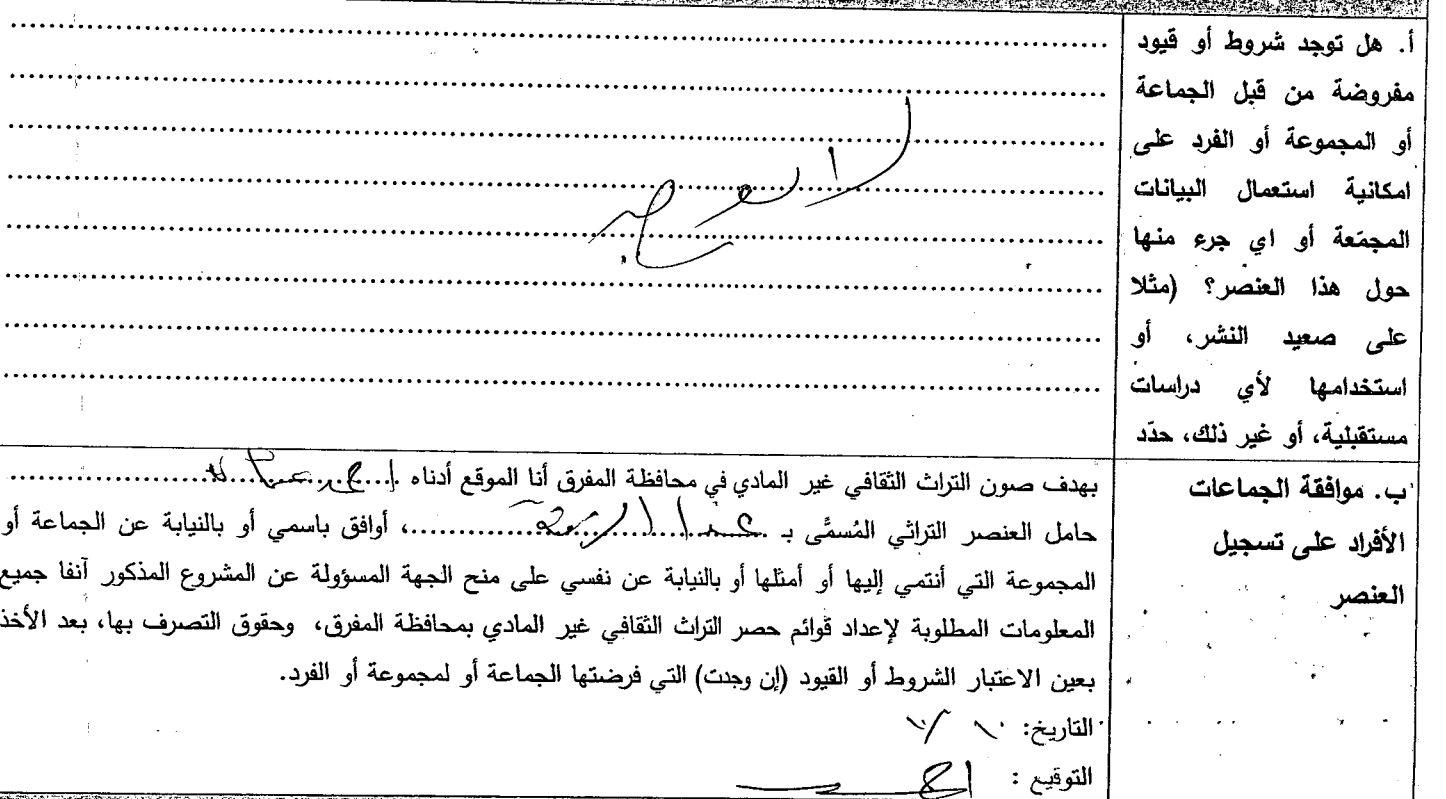 أ. هل توجد شروط أو قيود
مفروضة من قبل الجماعة
أو المجموعة أو الفرد على
امكانية استعمال البيانات
المجمّعة أو اي جرء منها
حول هذا العنصر؟ (مثلا
على صعيد النشر، أو
استخدامها لأي دراسات
مستقبلية، أو غير ذلك، حدّد
لا يوجد
ب. موافقة الجماعات
الأفراد على تسجيل
العنصر
بهدف صون التراث الثقافي غير المادي في محافظة المفرق أنا الموقع أدناه
حامل العنصر التراثي المُسمَّى بـ ، أوافق باسمي أو بالنيابة عن الجماعة أو
المجموعة التي أنتمي إليها أو أمثلها أو بالنيابة عن نفسي على منح الجهة المسؤولة عن المشروع المذكور آنفا جميع
المعلومات المطلوبة لإعداد قوائم حصر التراث الثقافي غير المادي بمحافظة المفرق، وحقوق التصرف بها، بعد الأخذ
بعين الاعتبار الشروط أو القيود (إن وجدت) التي فرضتها الجماعة أو لمجموعة أو الفرد.
التاريخ:
التوقيع :